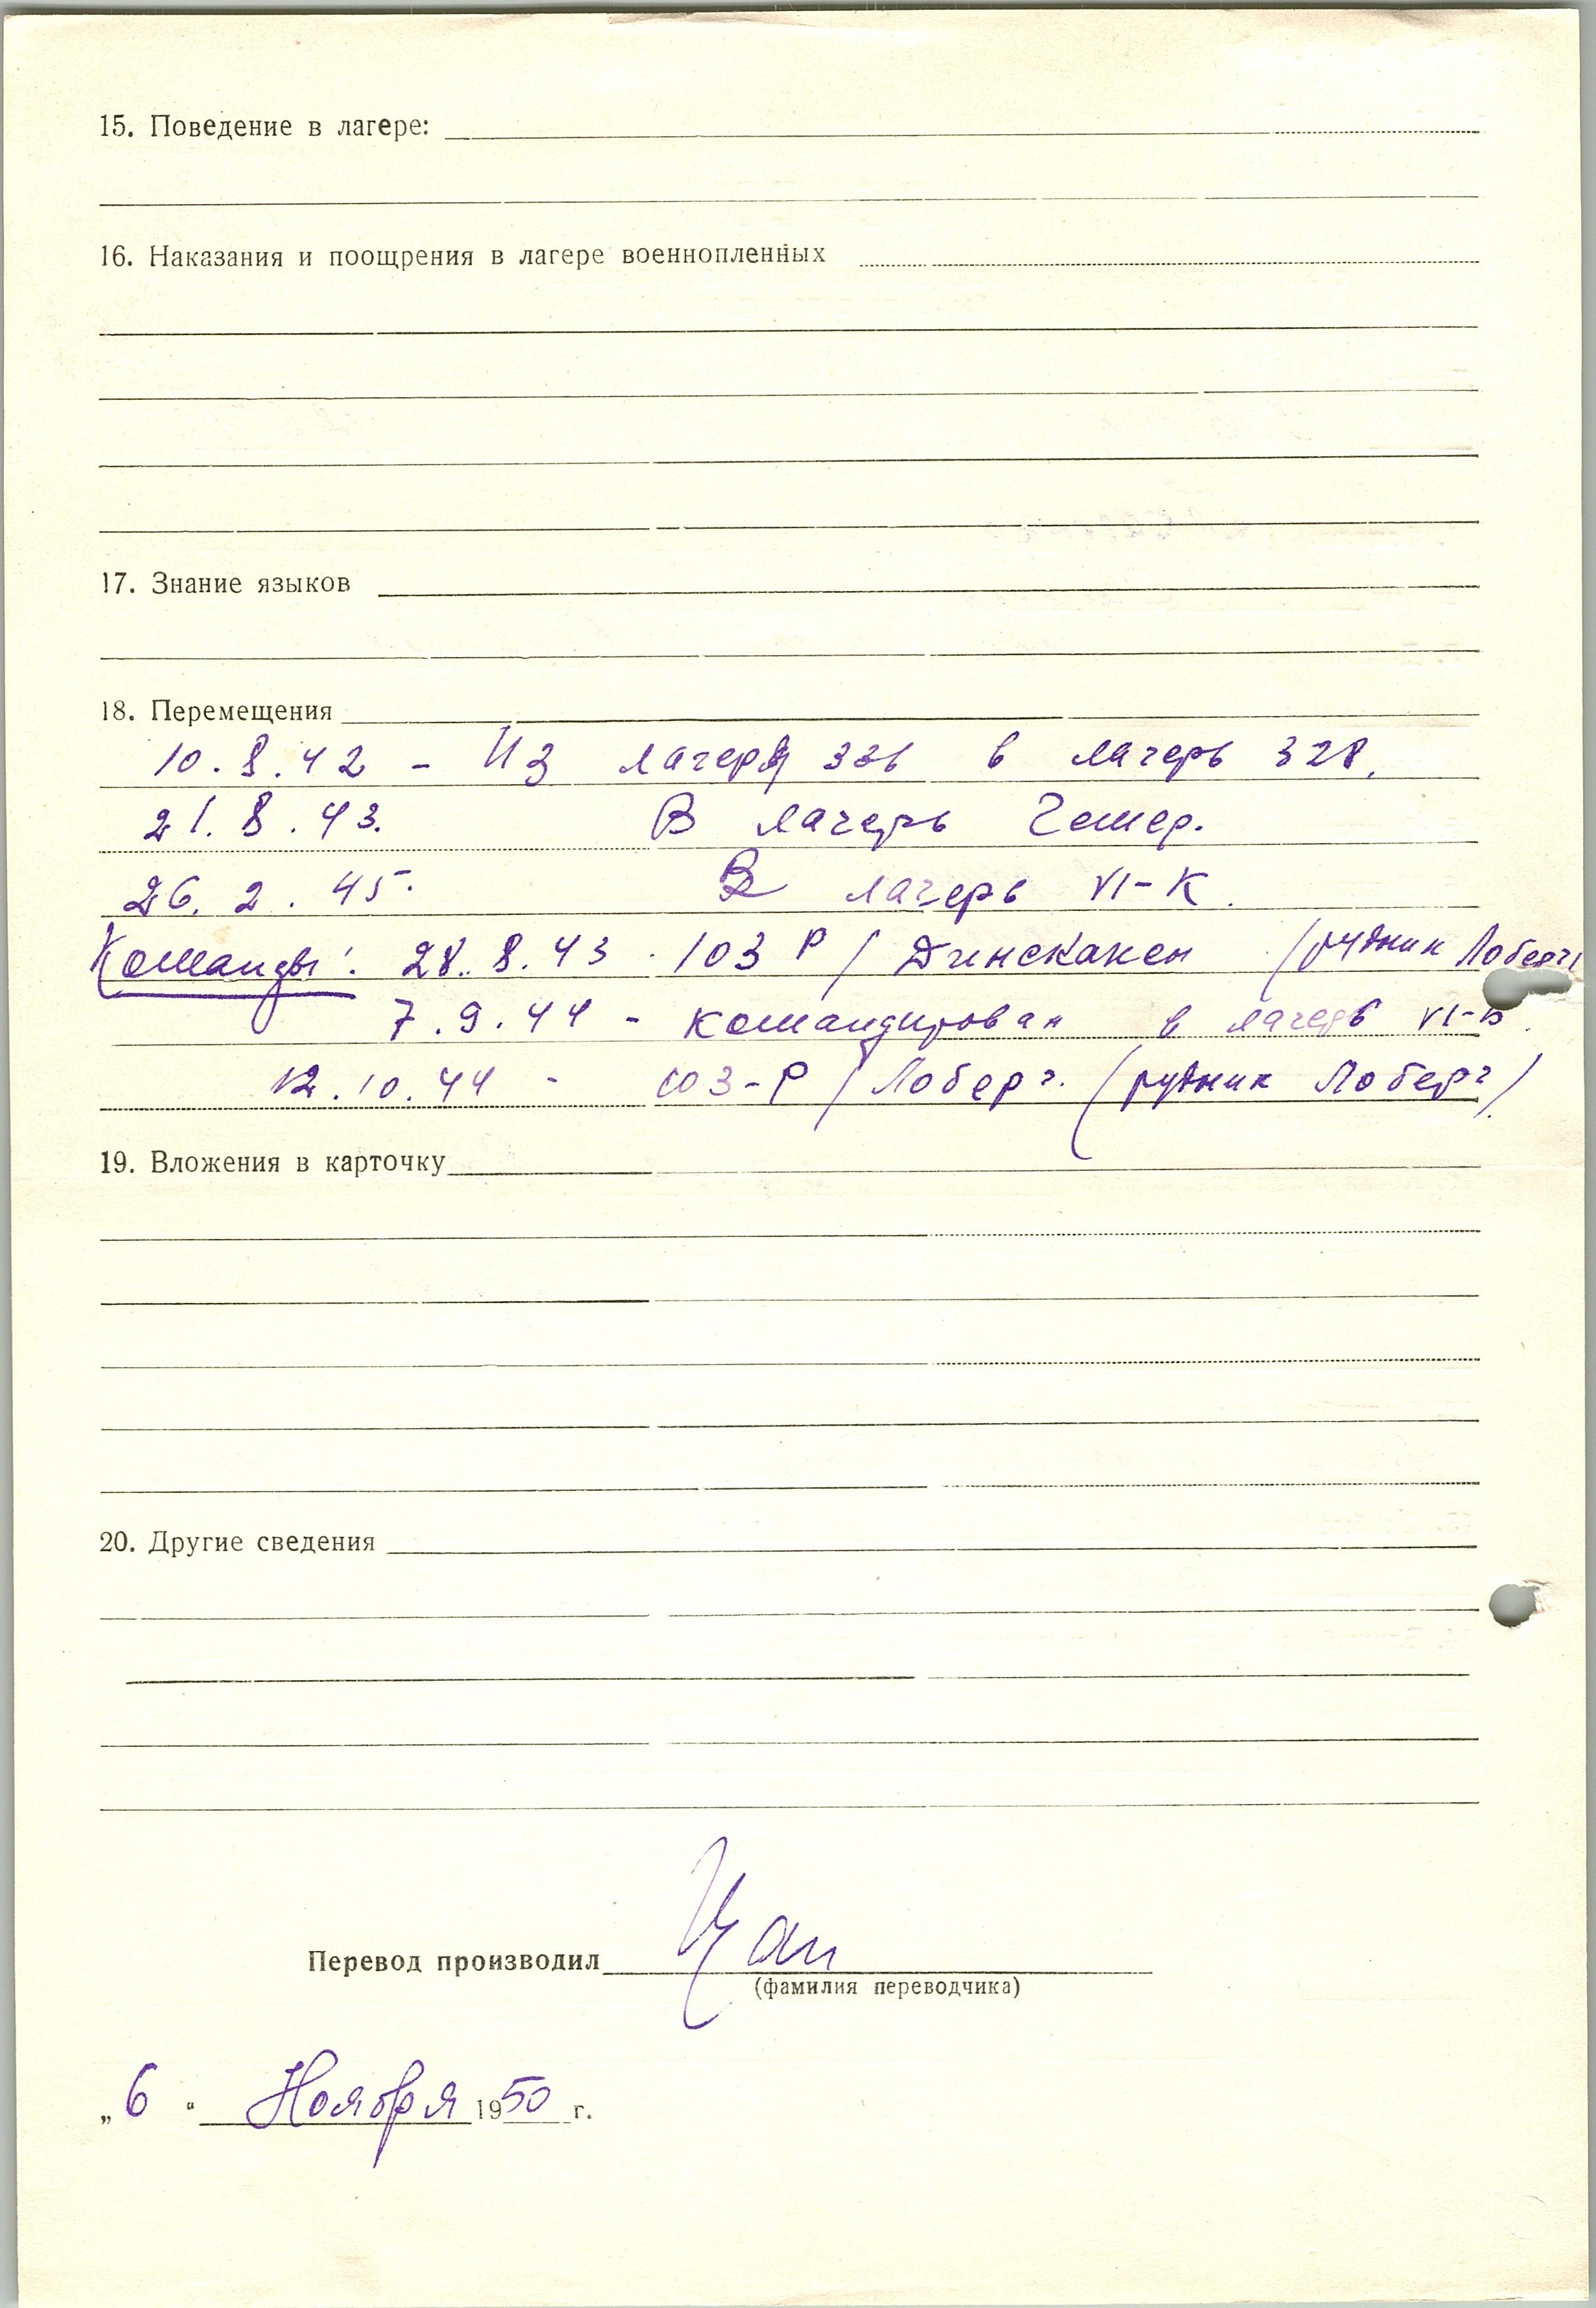 15. Поведение в лагере:
16. Наказания и поощрения в лагере военнопленных
17. Знание языков
18. Перемещения
10.8.42 - Из лагеря 336 в лагерь 328.
21.8.43. В лагерь Гемер.
26.2.45. В лагерь VI-К.
Команды: 28.8.43. 103 Р / Динскакен (рудник Лоберг)
7.9.44 - командирован в лагерь
12.10.44 - 103-Р / Лоберг. (рудник Лоберг)
19. Вложения в карточку
20. Другие сведения
Перевод производил
(фамилия переводчика)
„6“ Ноября 1950 г.